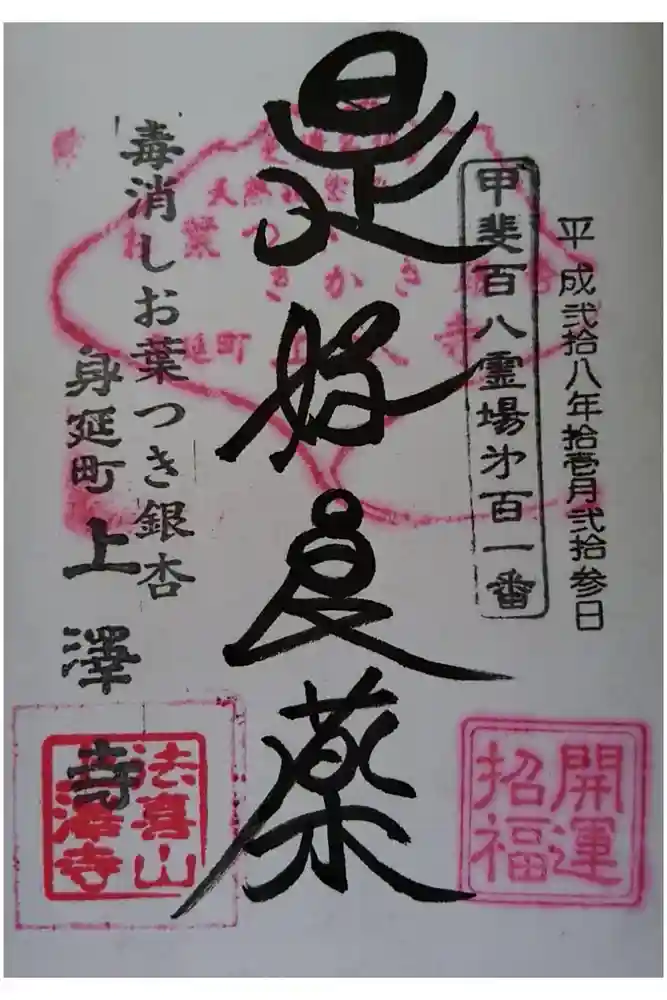 平成弐拾八年拾壱月弐拾参日
甲斐百八霊場第百一番
是好良薬
毒消しお葉つき銀杏
身延町 上澤寺
開運
招福
法喜山
上澤寺
天然
お葉つき
さかき
延町
寺